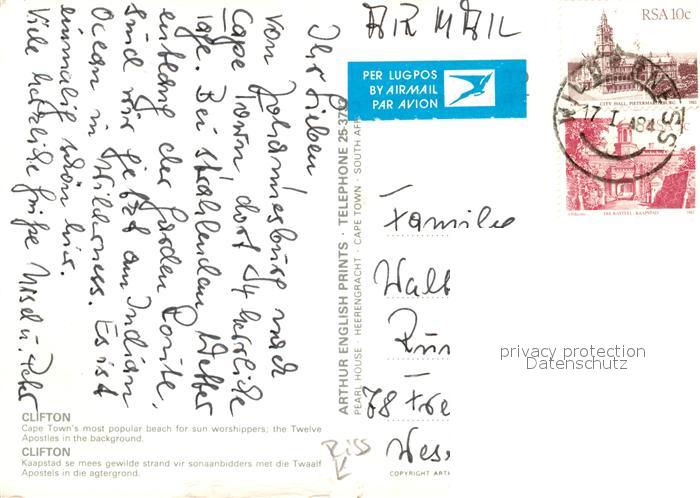 AIR MAIL
RSA 10c
CITY HALL, PIETERMARITZBURG
WILDERNESS
17 I 84
DIE KASTEEL, KAAPSTAD
PER LUGPOS
BY AIRMAIL
PAR AVION
Ihr Lieben!
Von Johannesburg nach
Cape Town, dort 14 herrliche
Tage. Bei strahlendem Wetter
entlang der Garden Route.
Sind wir jetzt am Indian
Ocean in Wilderness. Es ist
einmalig schön hier.
Viele herzliche Grüße Ursel u. Peter
ARTHUR ENGLISH PRINTS · TELEPHONE 25-37
PEARL HOUSE · HEERENGRACHT · CAPE TOWN · SOUTH AFR
Familie
Walt
78 Fre
Wes
privacy protection
Datenschutz
CLIFTON
Cape Town's most popular beach for sun worshippers; the Twelve
Apostles in the background.
CLIFTON
Kaapstad se mees gewilde strand vir sonaanbidders met die Twaalf
Apostels in die agtergrond.
Riss
COPYRIGHT ART